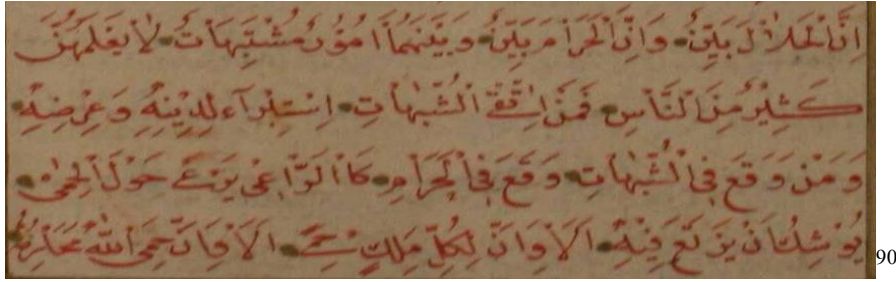 اِنَّ الْحَلَالَ بَيِّنٌ وَاِنَّ الْحَرَامَ بَيِّنٌ وَبَيْنَهُمَا اُمُوْرٌ مُشْتَبِهَاتٌ لَا يَعْلَمُهُنَّ
كَثِيْرٌ مِنَ النَّاسِ فَمَنْ اتَّقَى الشُّبُهَاتِ اِسْتَبْرَاَء لِدِيْنِهِ وَعِرْضِهِ
وَمَنْ وَقَعَ فِى الشُّبُهَاتِ وَقَعَ فِى الْحَرَامِ كَالرَّاعِى يَرْعَى حَوْلَ الْحِمٰى
يُوْشِكُ اَنْ يَرْتَعَ فِيْهِ اَلَا وَاِنَّ لِكُلِّ مَلِكٍ حِمًى اَلَا وَاِنَّ حِمَى اللّٰهِ مَحَارِمُهُ
90